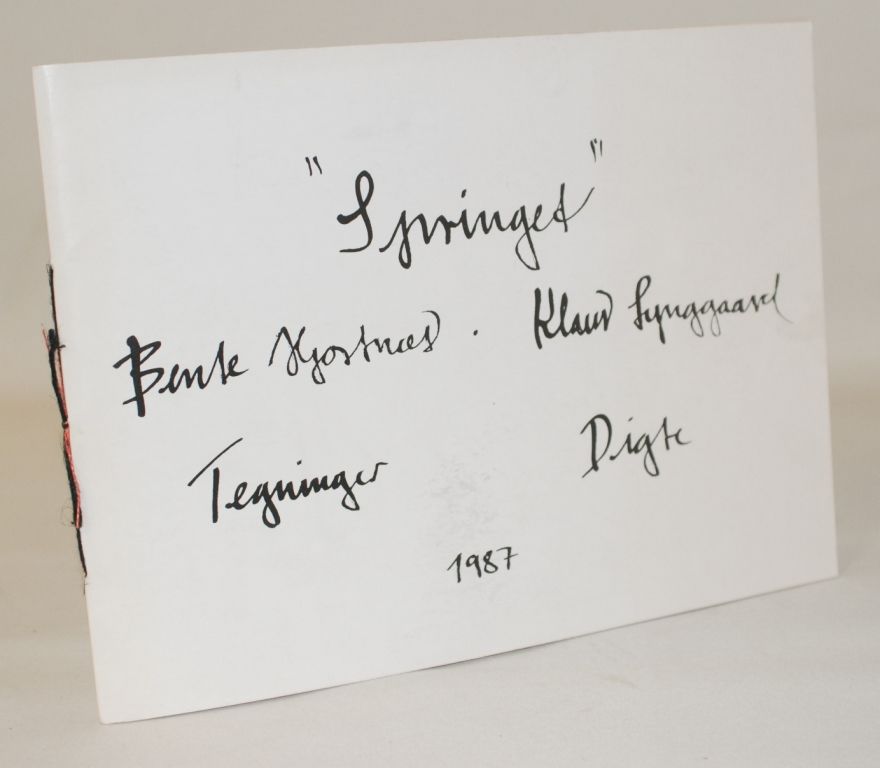 "Springet"
Bente Hjortnæs . Klaus Lynggaard
Tegninger Digte
1987